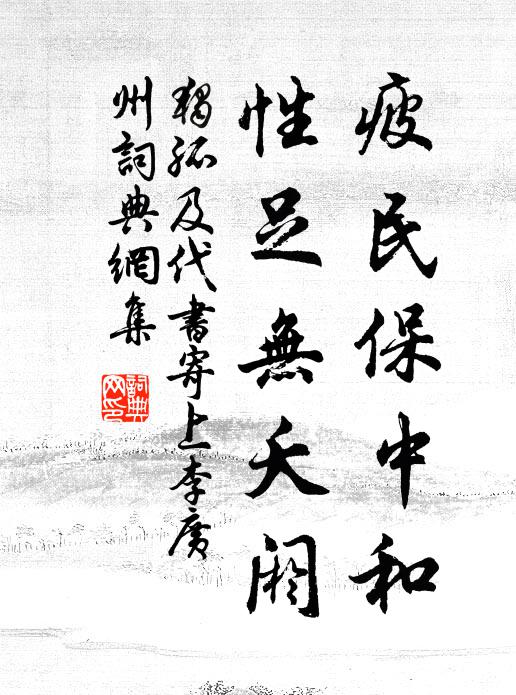 疲民保中和
性足無夭阏
獨孤及代書寄上李廣
州詞典網集
詞典
网印